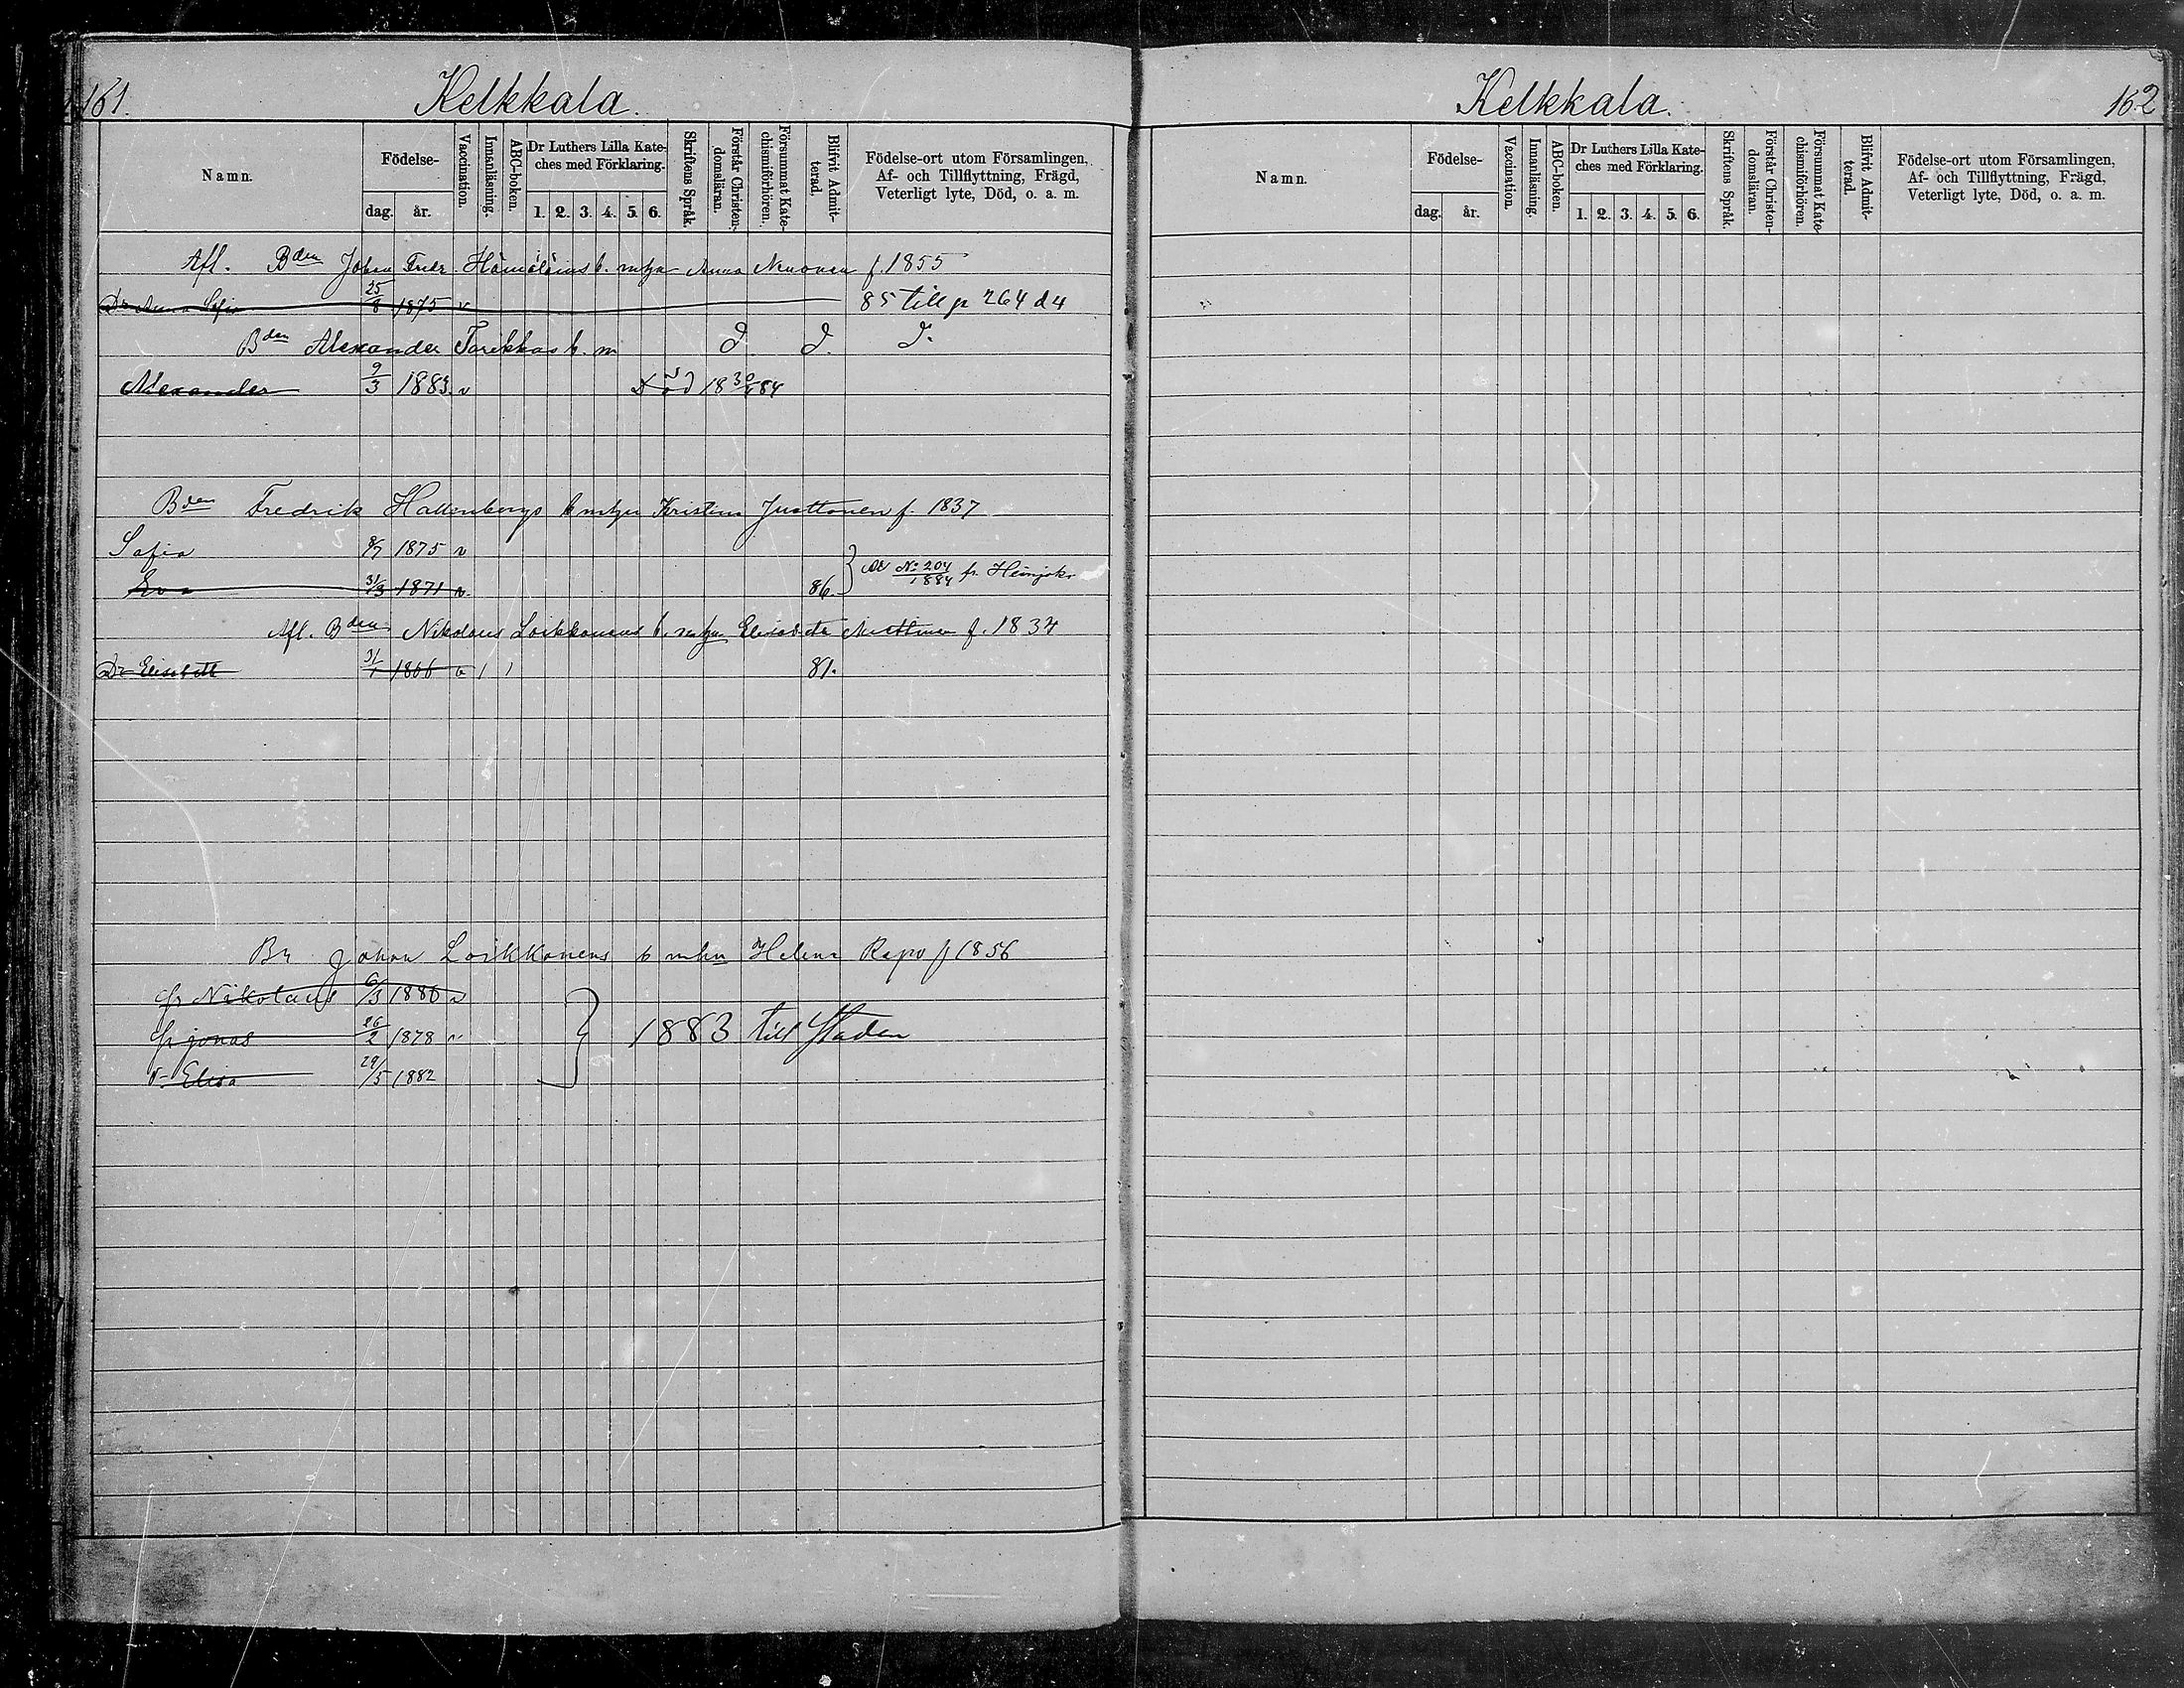 161.
Kelkkala.
Namn.
Födelse-
dag.
år.
Vaccination.
Innanläsning.
ABC-boken.
Dr Luthers Lilla Kate-
ches med Förklaring.
1. 2. 3. 4. 5. 6.
Skriftens Språk.
Förstår Christen-
domsläran.
Försummat Kate-
chismiförhören.
Blifvit Admit-
terad.
Födelse-ort utom Församlingen,
Af- och Tillflyttning, Frägd,
Veterligt lyte, Död, o. a. m.
Afl. Bden Johan Fredr. Hämäläins b. m Anna Nuonen f. 1855
Dr Anna Sofia 25/8 1875 v 85 till p 264 d 4
Bden Alexander Torikkas b. m d. d. d.
Alexander 9/3 1883. v Död 18 30/ 84
Bden Fredrik Hallenbergs b m Kristina Juottonen f. 1837
Sofia 8/7 1875 v
Eva 31/3 1871 v. 86. No 204/1884 fr. Heinjoki
Afl. Bden Nikolaus Loikkanens b. m Elisabeta f. 1834
Dr Elisabeth 31/1 1866 v 1 1 81.
Br Johan Loikkanens b m Helena Repo f 1856
Nikolaus 6/3 1880 v
jonas 26/2 1878 v 1883 till Staden
Elisa 29/5 1882
Kelkkala.
162
Namn.
Födelse-
dag.
år.
Vaccination.
Innanläsning.
ABC-boken.
Dr Luthers Lilla Kate-
ches med Förklaring.
1. 2. 3. 4. 5. 6.
Skriftens Språk.
Förstår Christen-
domsläran.
Försummat Kate-
chismiförhören.
Blifvit Admit-
terad.
Födelse-ort utom Församlingen,
Af- och Tillflyttning, Frägd,
Veterligt lyte, Död, o. a. m.